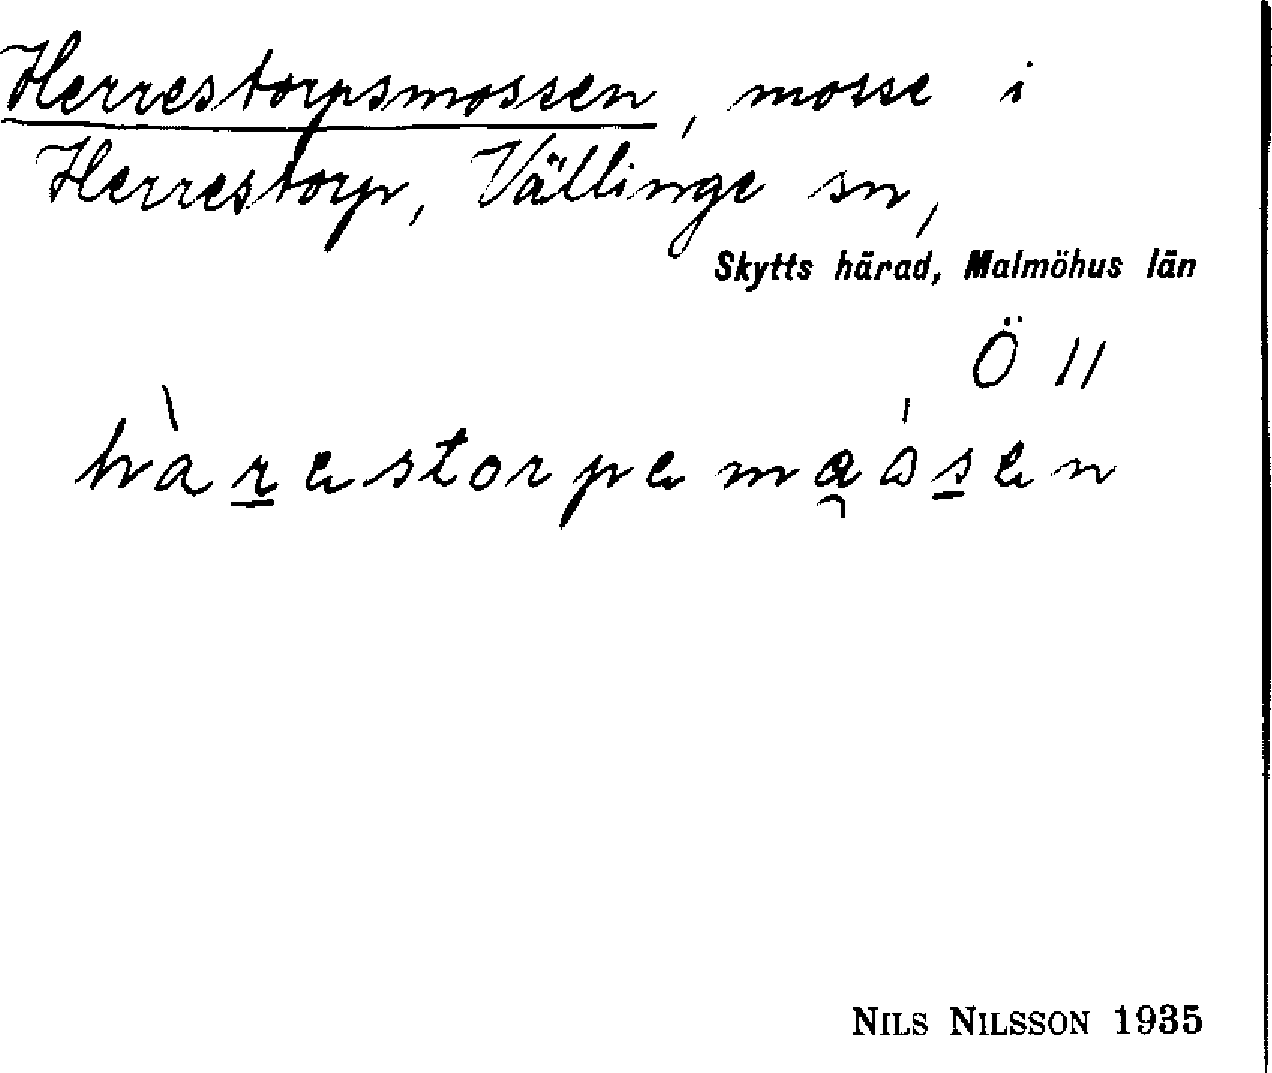 Herrestorpsmossen, mosse i
Herrestorp, Vällinge sn,
Skytts härad, Malmöhus län
Ö 11
NILS NILSSON 1935